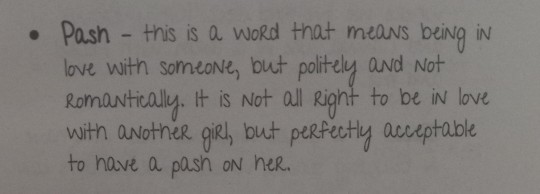 • Pash - this is a word that means being in
love with someone, but politely and not
romantically. It is not all right to be in love
with another girl, but perfectly acceptable
to have a pash on her.